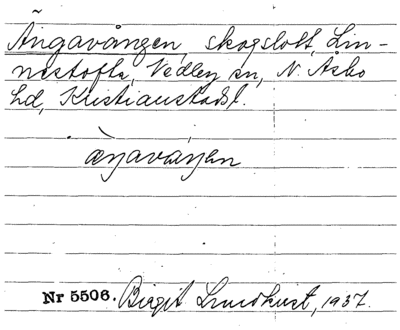 Ängavången, skogslott, Lin-
nestofta, Vedby sn, N. Åsbo
hd, Kristianstadsl.
Nr 5506. Birgit Lundkvist, 1937.